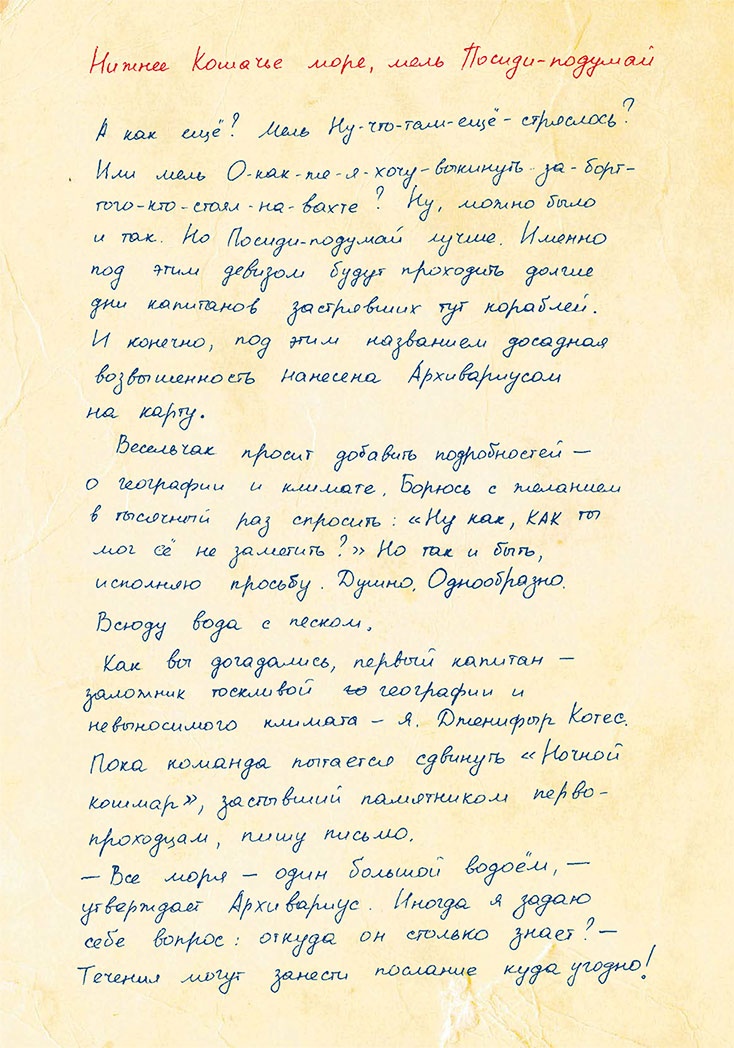 Нижнее Кошачье море, мель Посиди-подумай
А как ещё? Мель Ну-что-там-ещё-стряслось?
Или мель О-как-же-я-хочу-выкинуть-за-борт-
того-кто-стоял-на-вахте? Ну, можно было
и так. Но Посиди-подумай лучше. Именно
под этим девизом будут проходить долгие
дни капитанов застрявших тут кораблей.
И конечно, под этим названием досадная
возвышенность нанесена Архивариусом
на карту.
Весельчак просит добавить подробностей —
о географии и климате. Борюсь с желанием
в тысячный раз спросить: «Ну как, КАК ты
мог её не заметить?» Но так и быть,
исполняю просьбу. Душно. Однообразно.
Всюду вода с песком.
Как вы догадались, первый капитан —
заложник тоскливой географии и
невыносимого климата – я. Дженифыр Котес.
Пока команда пытается сдвинуть «Ночной
кошмар», застывший памятником перво-
проходцам, пишу письмо.
— Все моря – один большой водоём, —
утверждает Архивариус. Иногда я задаю
себе вопрос: откуда он столько знает? —
Течения могут занести послание куда угодно!